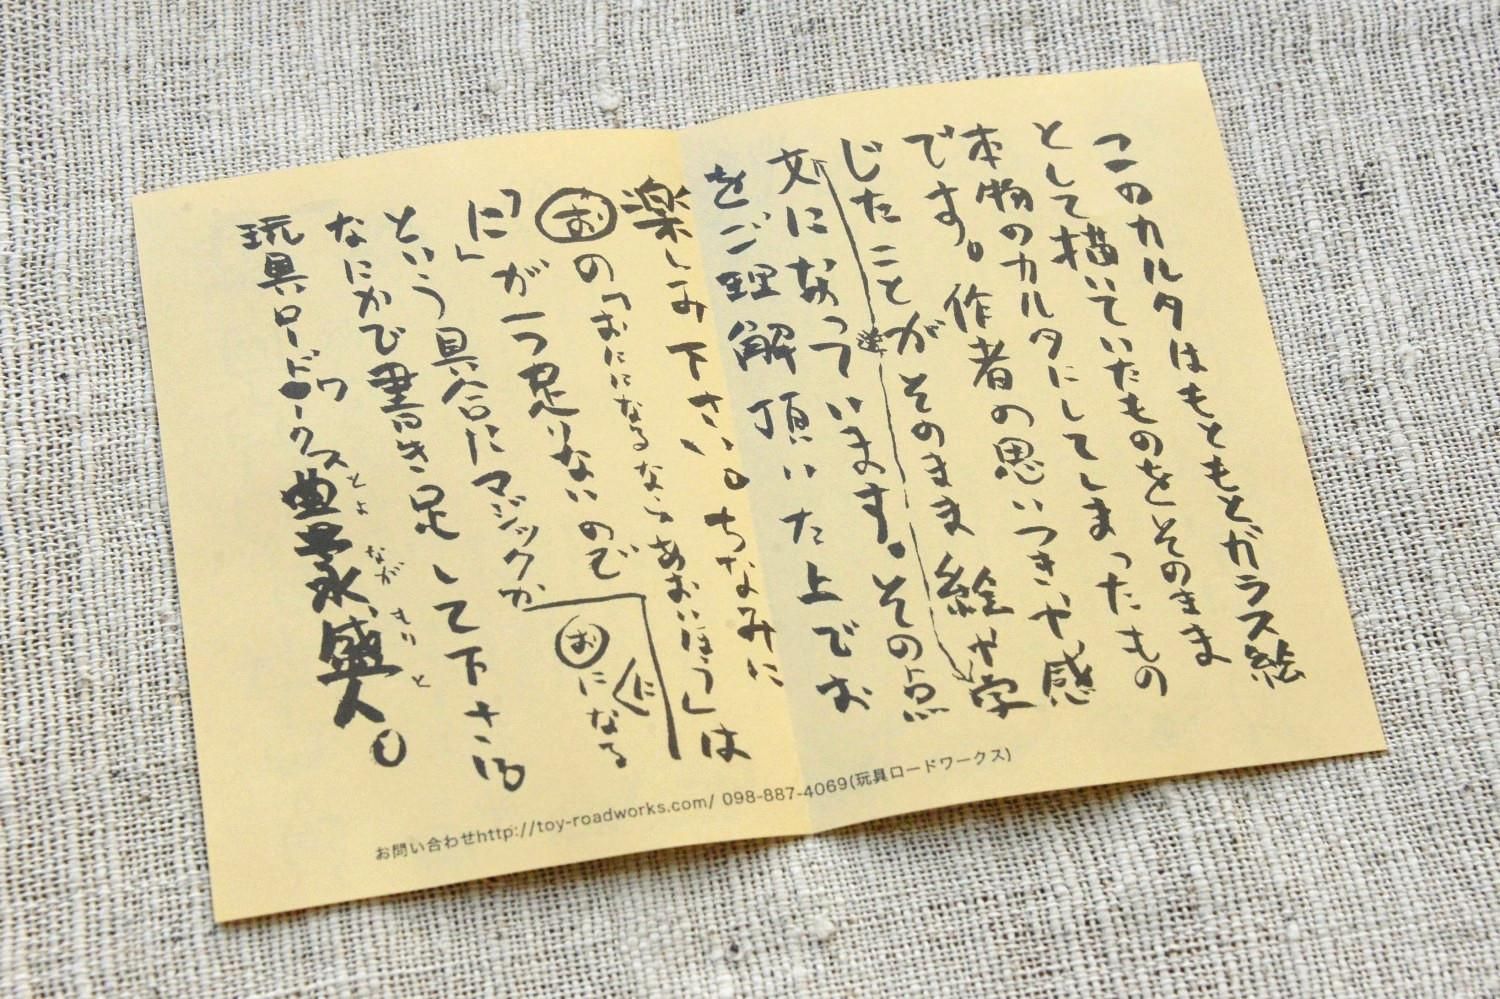 このカルタはもともとガラス絵
として描いていたものをそのまま
本物のカルタにしてしまったもの
です。作者の思いつきや感
じたことがそのまま絵や字
文になっています。その点
をご理解頂いた上でお
楽しみ下さい。ちなみに
おの「おにになるならあおいほう」は
「に」が一つ足りないので
マジックか
おになる
に
という具合に
なにかで書き足して下さい。
玩具ロードワークス豊永盛人。
とよ なが もり と
お問い合わせhttp://toy-roadworks.com/ 098-887-4069(玩具ロードワークス)